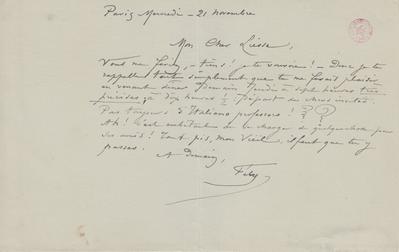 Paris Mercredi - 21 novembre
Mon Cher Liesse,
Vous me ferez, - tiens! je te vouvoie! - Donc je te
rappelle tout simplement que tu me ferais plaisir
en venant dîner demain jeudi à sept heures très
précises à dix heures! Départ de chez
Pas toujours d'Italiens professeurs!
Ah! c'est embêtant de manger quelque chose pour
ses amis! Tant pis, mon vieil, il faut que tu y
passes.
A demain,